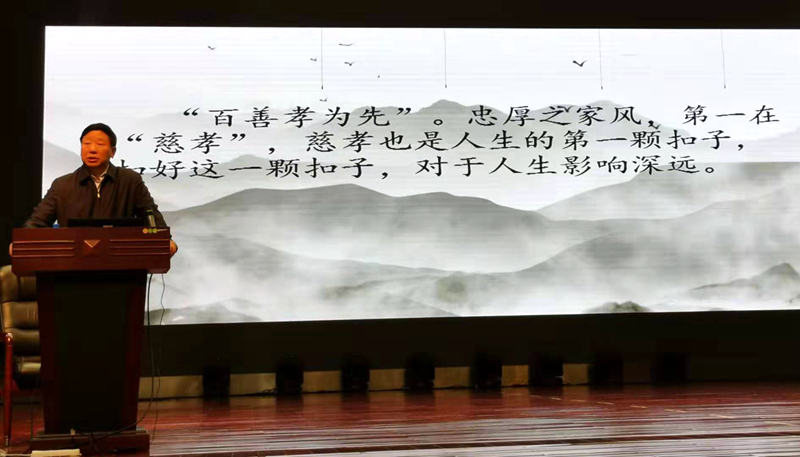 “百善孝为先”。忠厚之家风，第一在
“慈孝”，慈孝也是人生的第一颗扣子，
扣好这一颗扣子，对于人生影响深远。